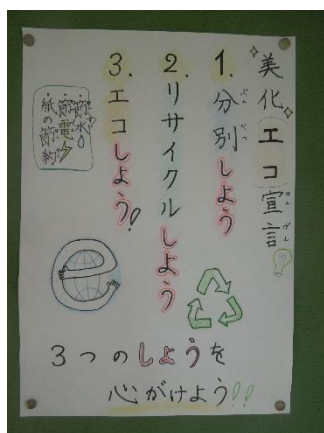 美化エコ宣言
1.分別しよう
2.リサイクルしよう
3.エコしよう!
・節水
・節電
・紙の節約
3つのしょうを
心がけよう!!